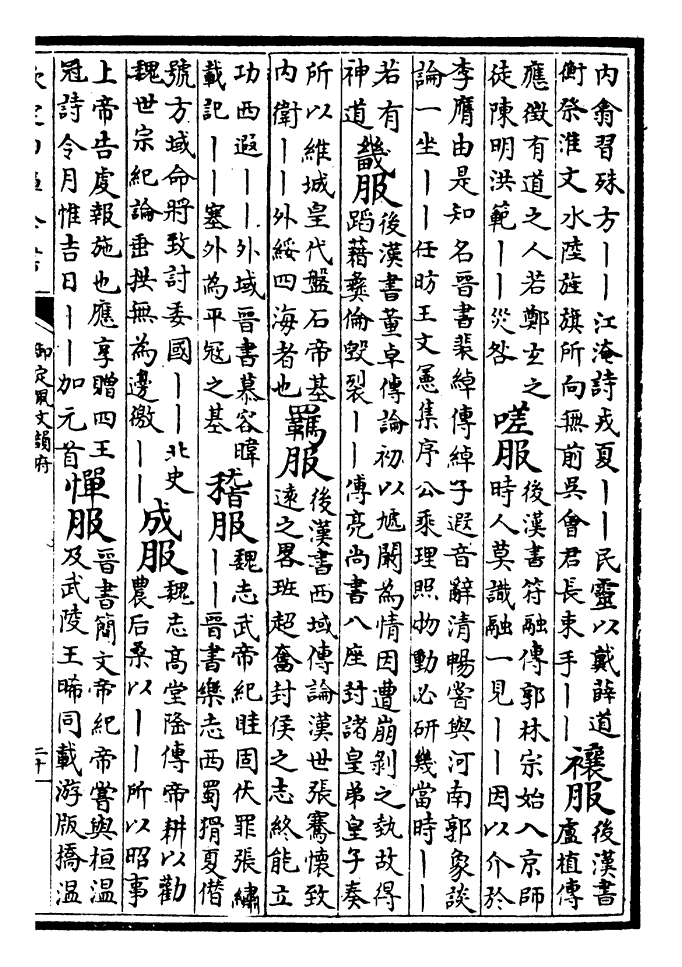 内翕習殊方——江淹詩戎夏——民靈以戴薛道
衡祭淮文水陸旌旗所向無前吳會君長束手——
禳服
後漢書
盧植傳
應徵有道之人若鄭玄之
徒陳明洪範——災咎
嗟服
後漢書符融傳郭林宗始入京師
時人莫識融一見——因以介於
李膺由是知名晉書裴綽傳綽子遐音辭清暢嘗與河南郭象談
論一坐——任昉王文憲集序公乘理照物動必研幾當時——
若有
神道
畿服
後漢書董卓傳論初以虓闞為情因遭崩剝之埶故得
蹈藉彝倫毀裂——傅亮尚書八座封諸皇弟皇子奏
所以維城皇代盤石帝基
内衛——外綏四海者也
羈服
後漢書西域傳論漢世張騫懷致
遠之畧班超奮封侯之志終能立
功西遐——外域晉書慕容暐
載記——塞外為平冦之基
稽服
魏志武帝紀眭固伏罪張繡
——晉書樂志西蜀猾夏僭
號方域命將致討委國——北史
魏世宗紀論垂拱無為邊徼——
成服
魏志高堂隆傳帝耕以勸
農后桑以——所以昭事
上帝告虔報施也應享贈四王
冠詩令月惟吉日——加元首
憚服
晉書簡文帝紀帝嘗與桓温
及武陵王晞同載游版橋温
御定佩文韻府
二十